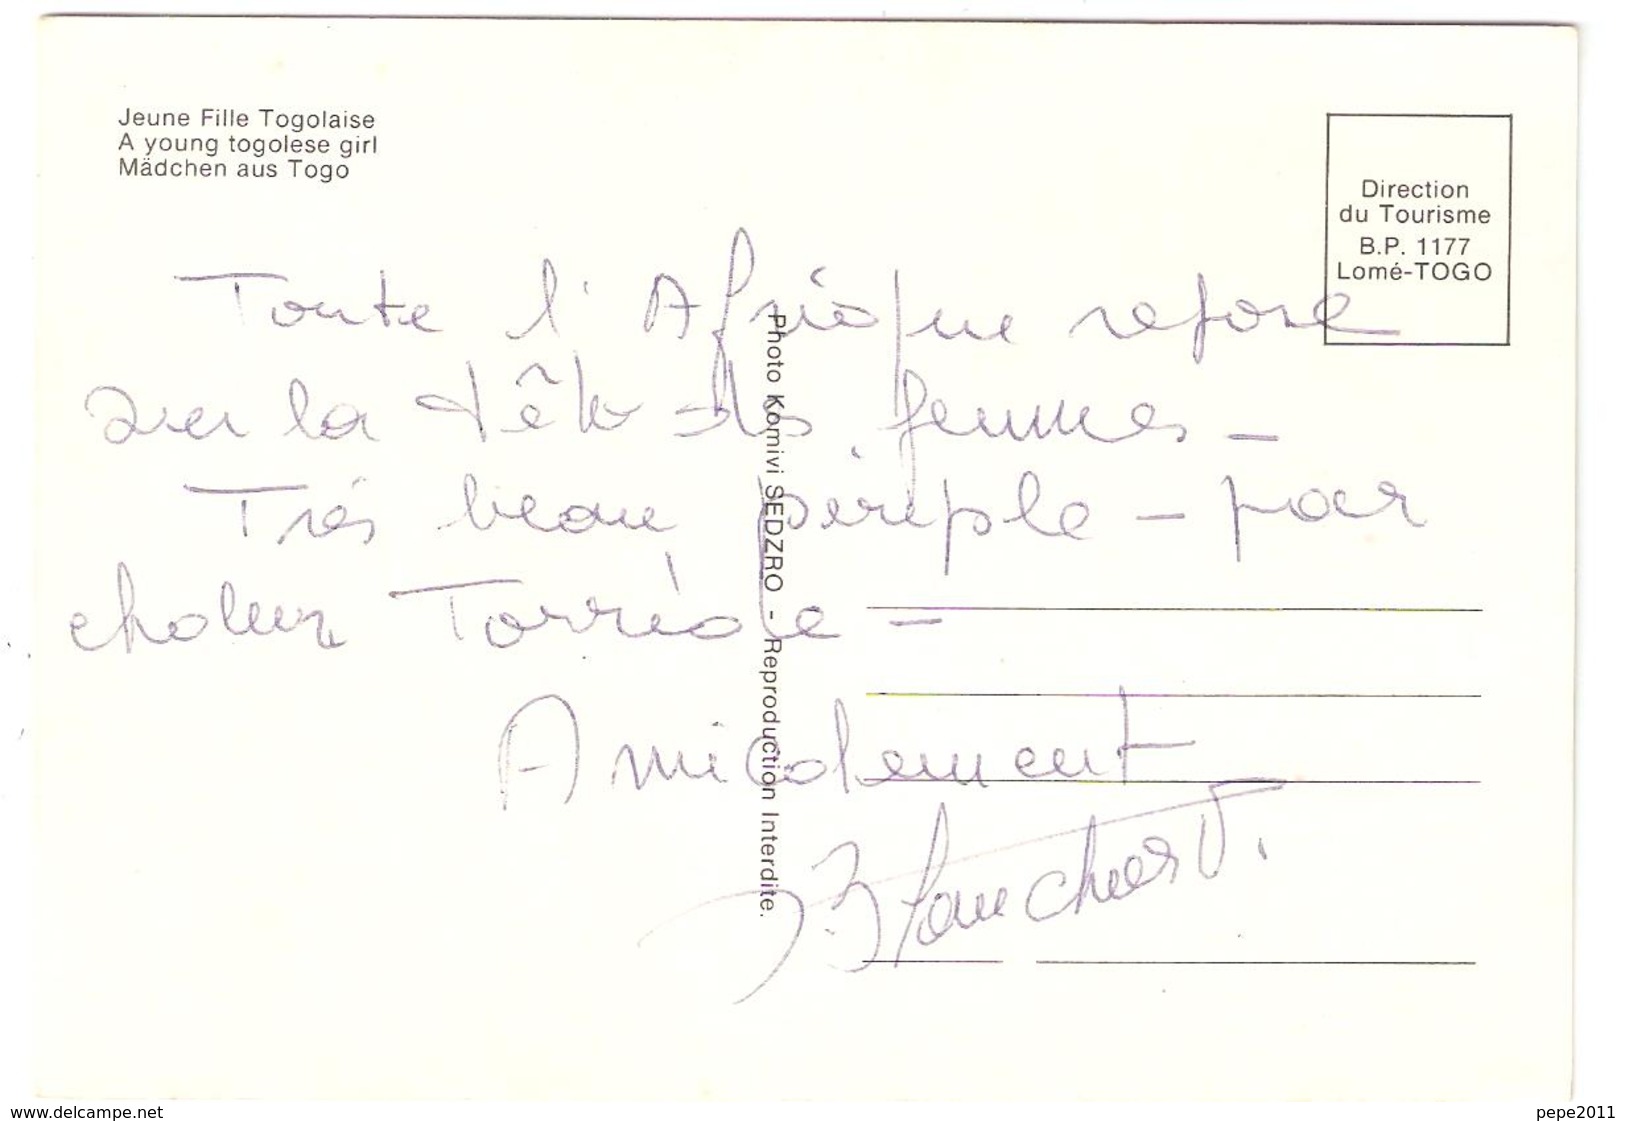 Jeune Fille Togolaise
A young togolese girl
Mädchen aus Togo
Direction
du Tourisme
B.P. 1177
Lomé-TOGO
Toute l'Afrique repose
sur la tête des femmes -
Très beau périple - par
chaleur Torride -
Amicalement
Blanchard.
Photo Komivi SEDZRO - Reproduction Interdite.
www.delcampe.net
pepe2011